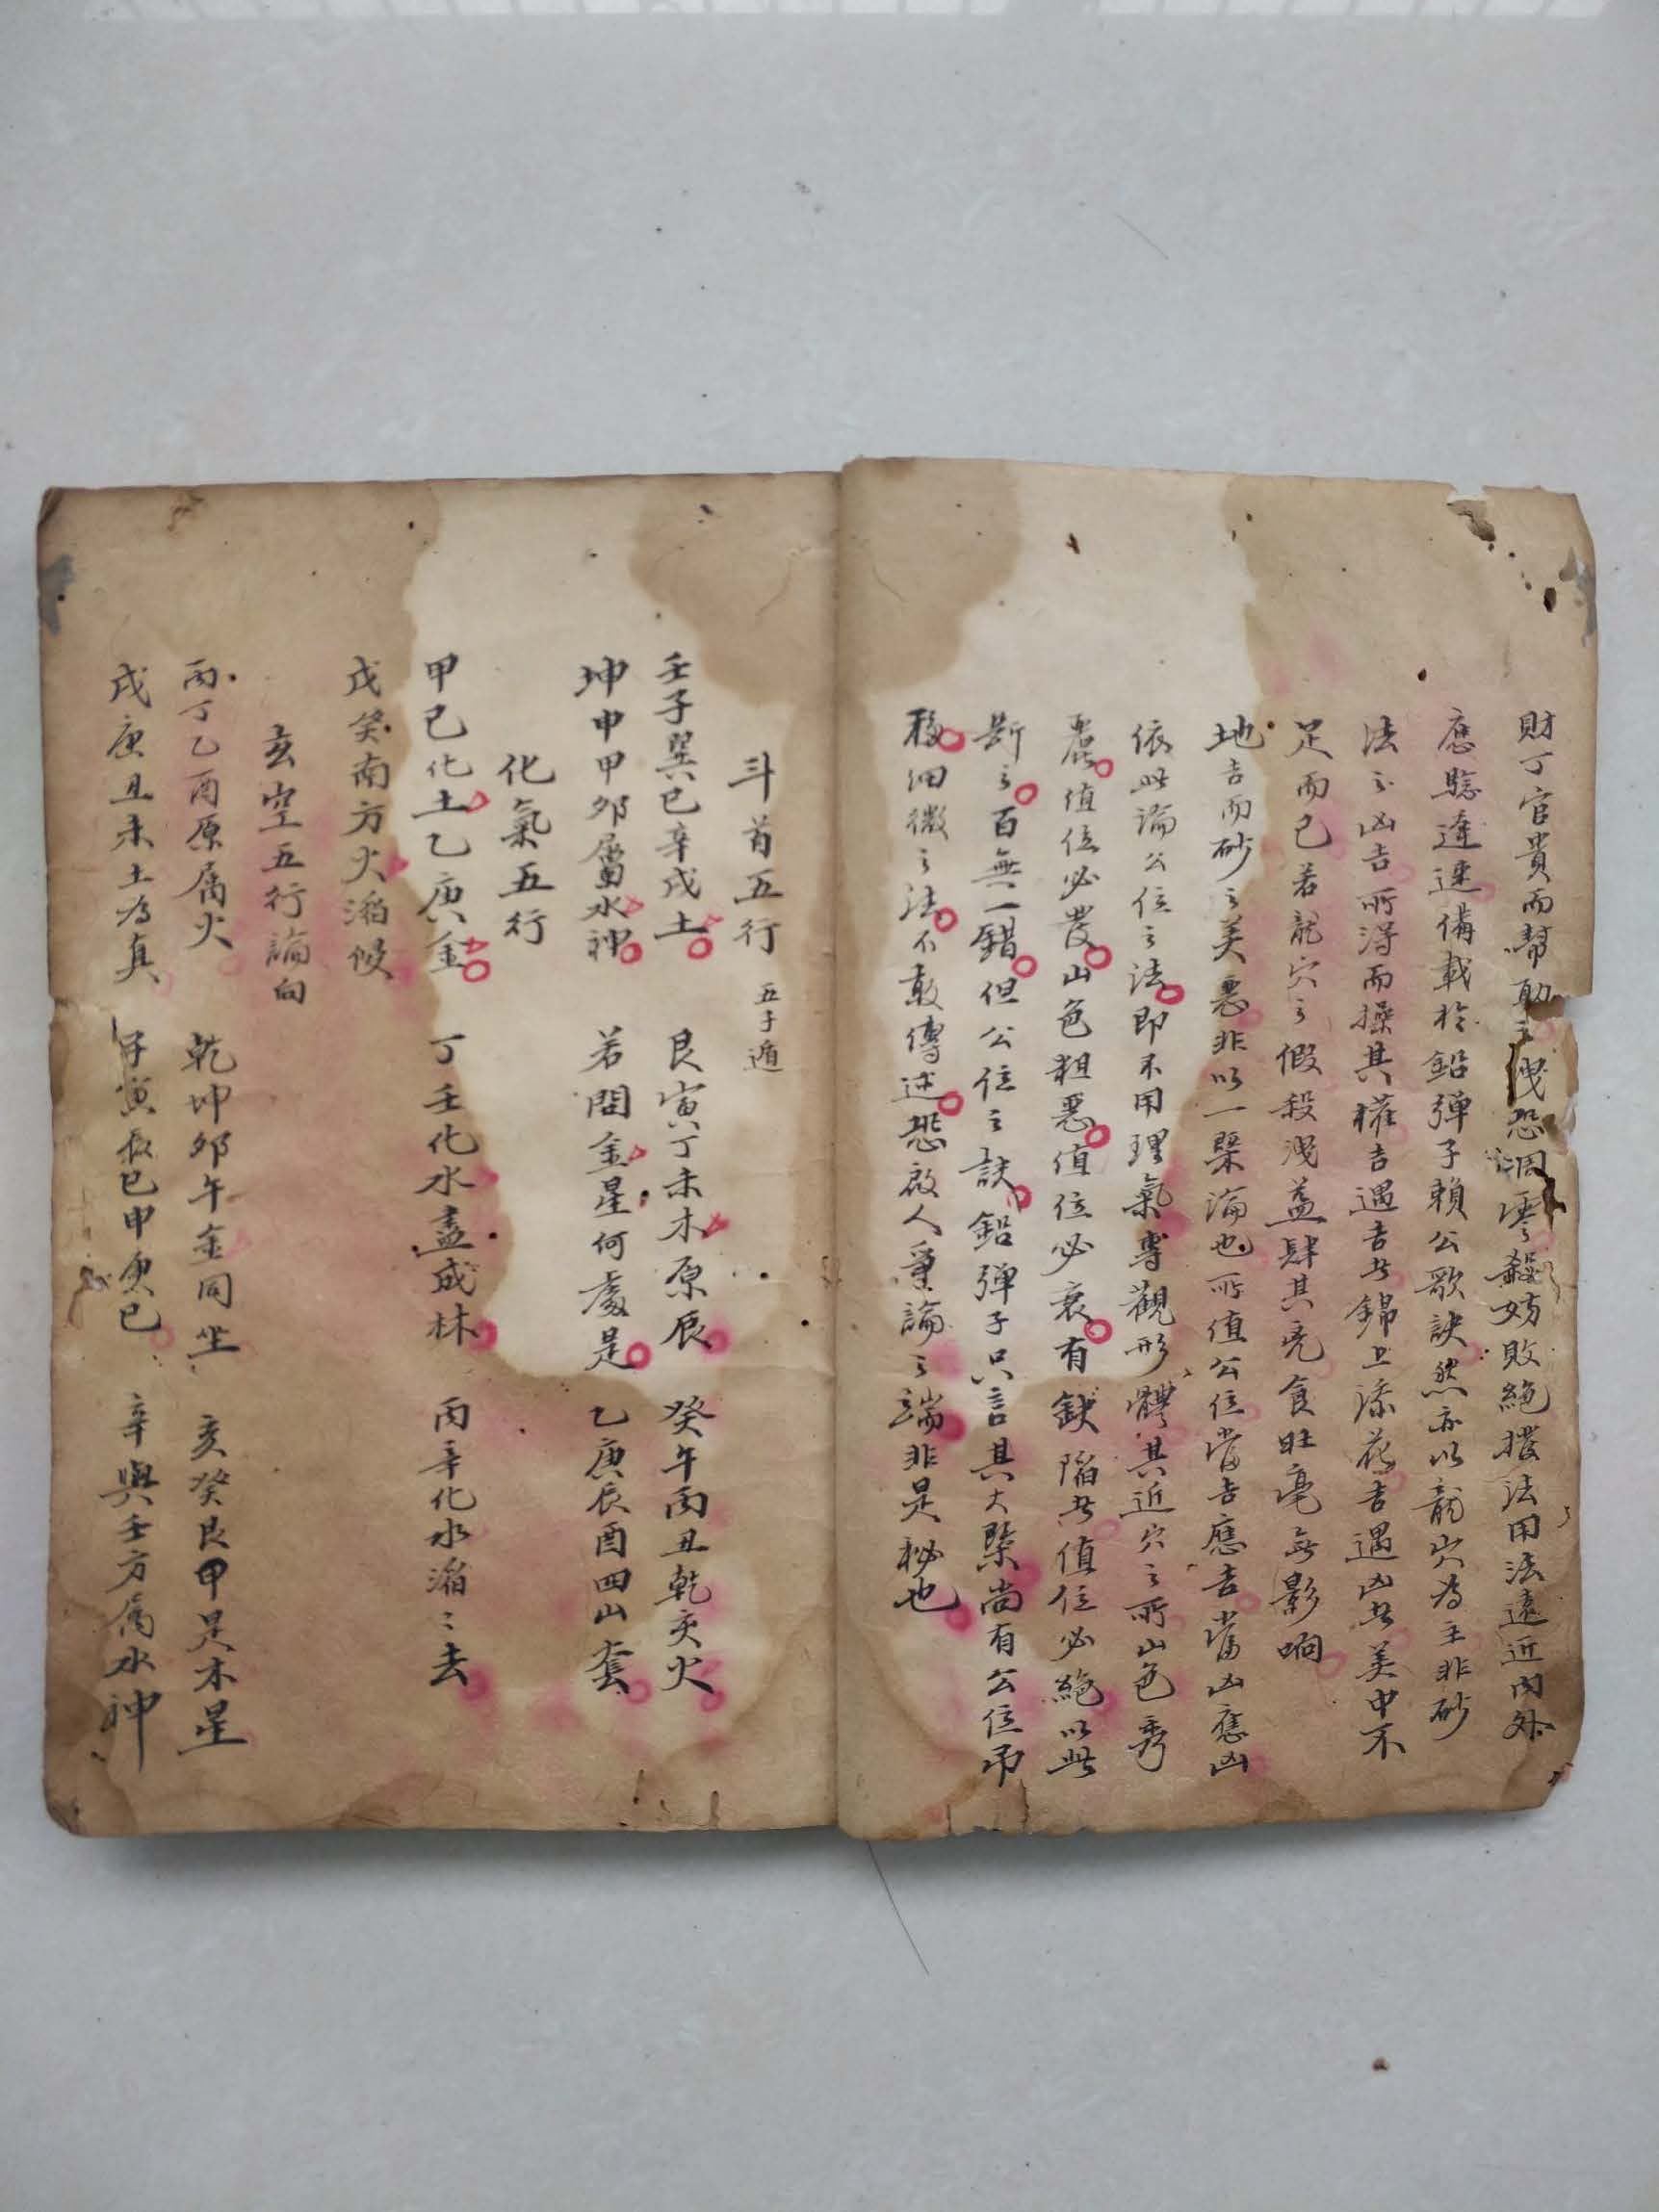 財丁官貴而幫助之洩恐凋零殺妨敗絕撥法用法遠近內外
應驗遲速備載於鉛彈子賴公歌訣然亦以龍穴為主非砂
法之凶吉所得而操其權吉遇吉者錦上添花吉遇凶者美中不
足而已若龍穴之假殺洩益肆其兇食旺毫無影响
地吉而砂之美惡非以一槩論也所值公位當吉應吉當凶應凶
依此論公位之法即不用理氣專觀形體其近穴之所山色秀
麗值位必發山色粗惡值位必衰有缺陷者值位必絕以此
斷之百無一錯但公位之訣鉛彈子只言其大槩尚有公位吊
移细微之法不敢傳述恐啟人爭論之端非是秘也
斗首五行 五子遁
壬子巽巳辛戌土 艮寅丁未木原辰 癸午丙丑乾亥火
坤申甲卯屬水神 若問金星何處是 乙庚辰酉四山套
化氣五行
甲己化土乙庚金 丁壬化水盡成林 丙辛化水滔々去
戊癸南方火滔候
玄空五行論向
丙丁乙酉原屬火 乾坤卯午金同坐 亥癸艮甲是木星
戌庚丑未土為真 子寅辰巳申庚巳 辛與壬方屬水神